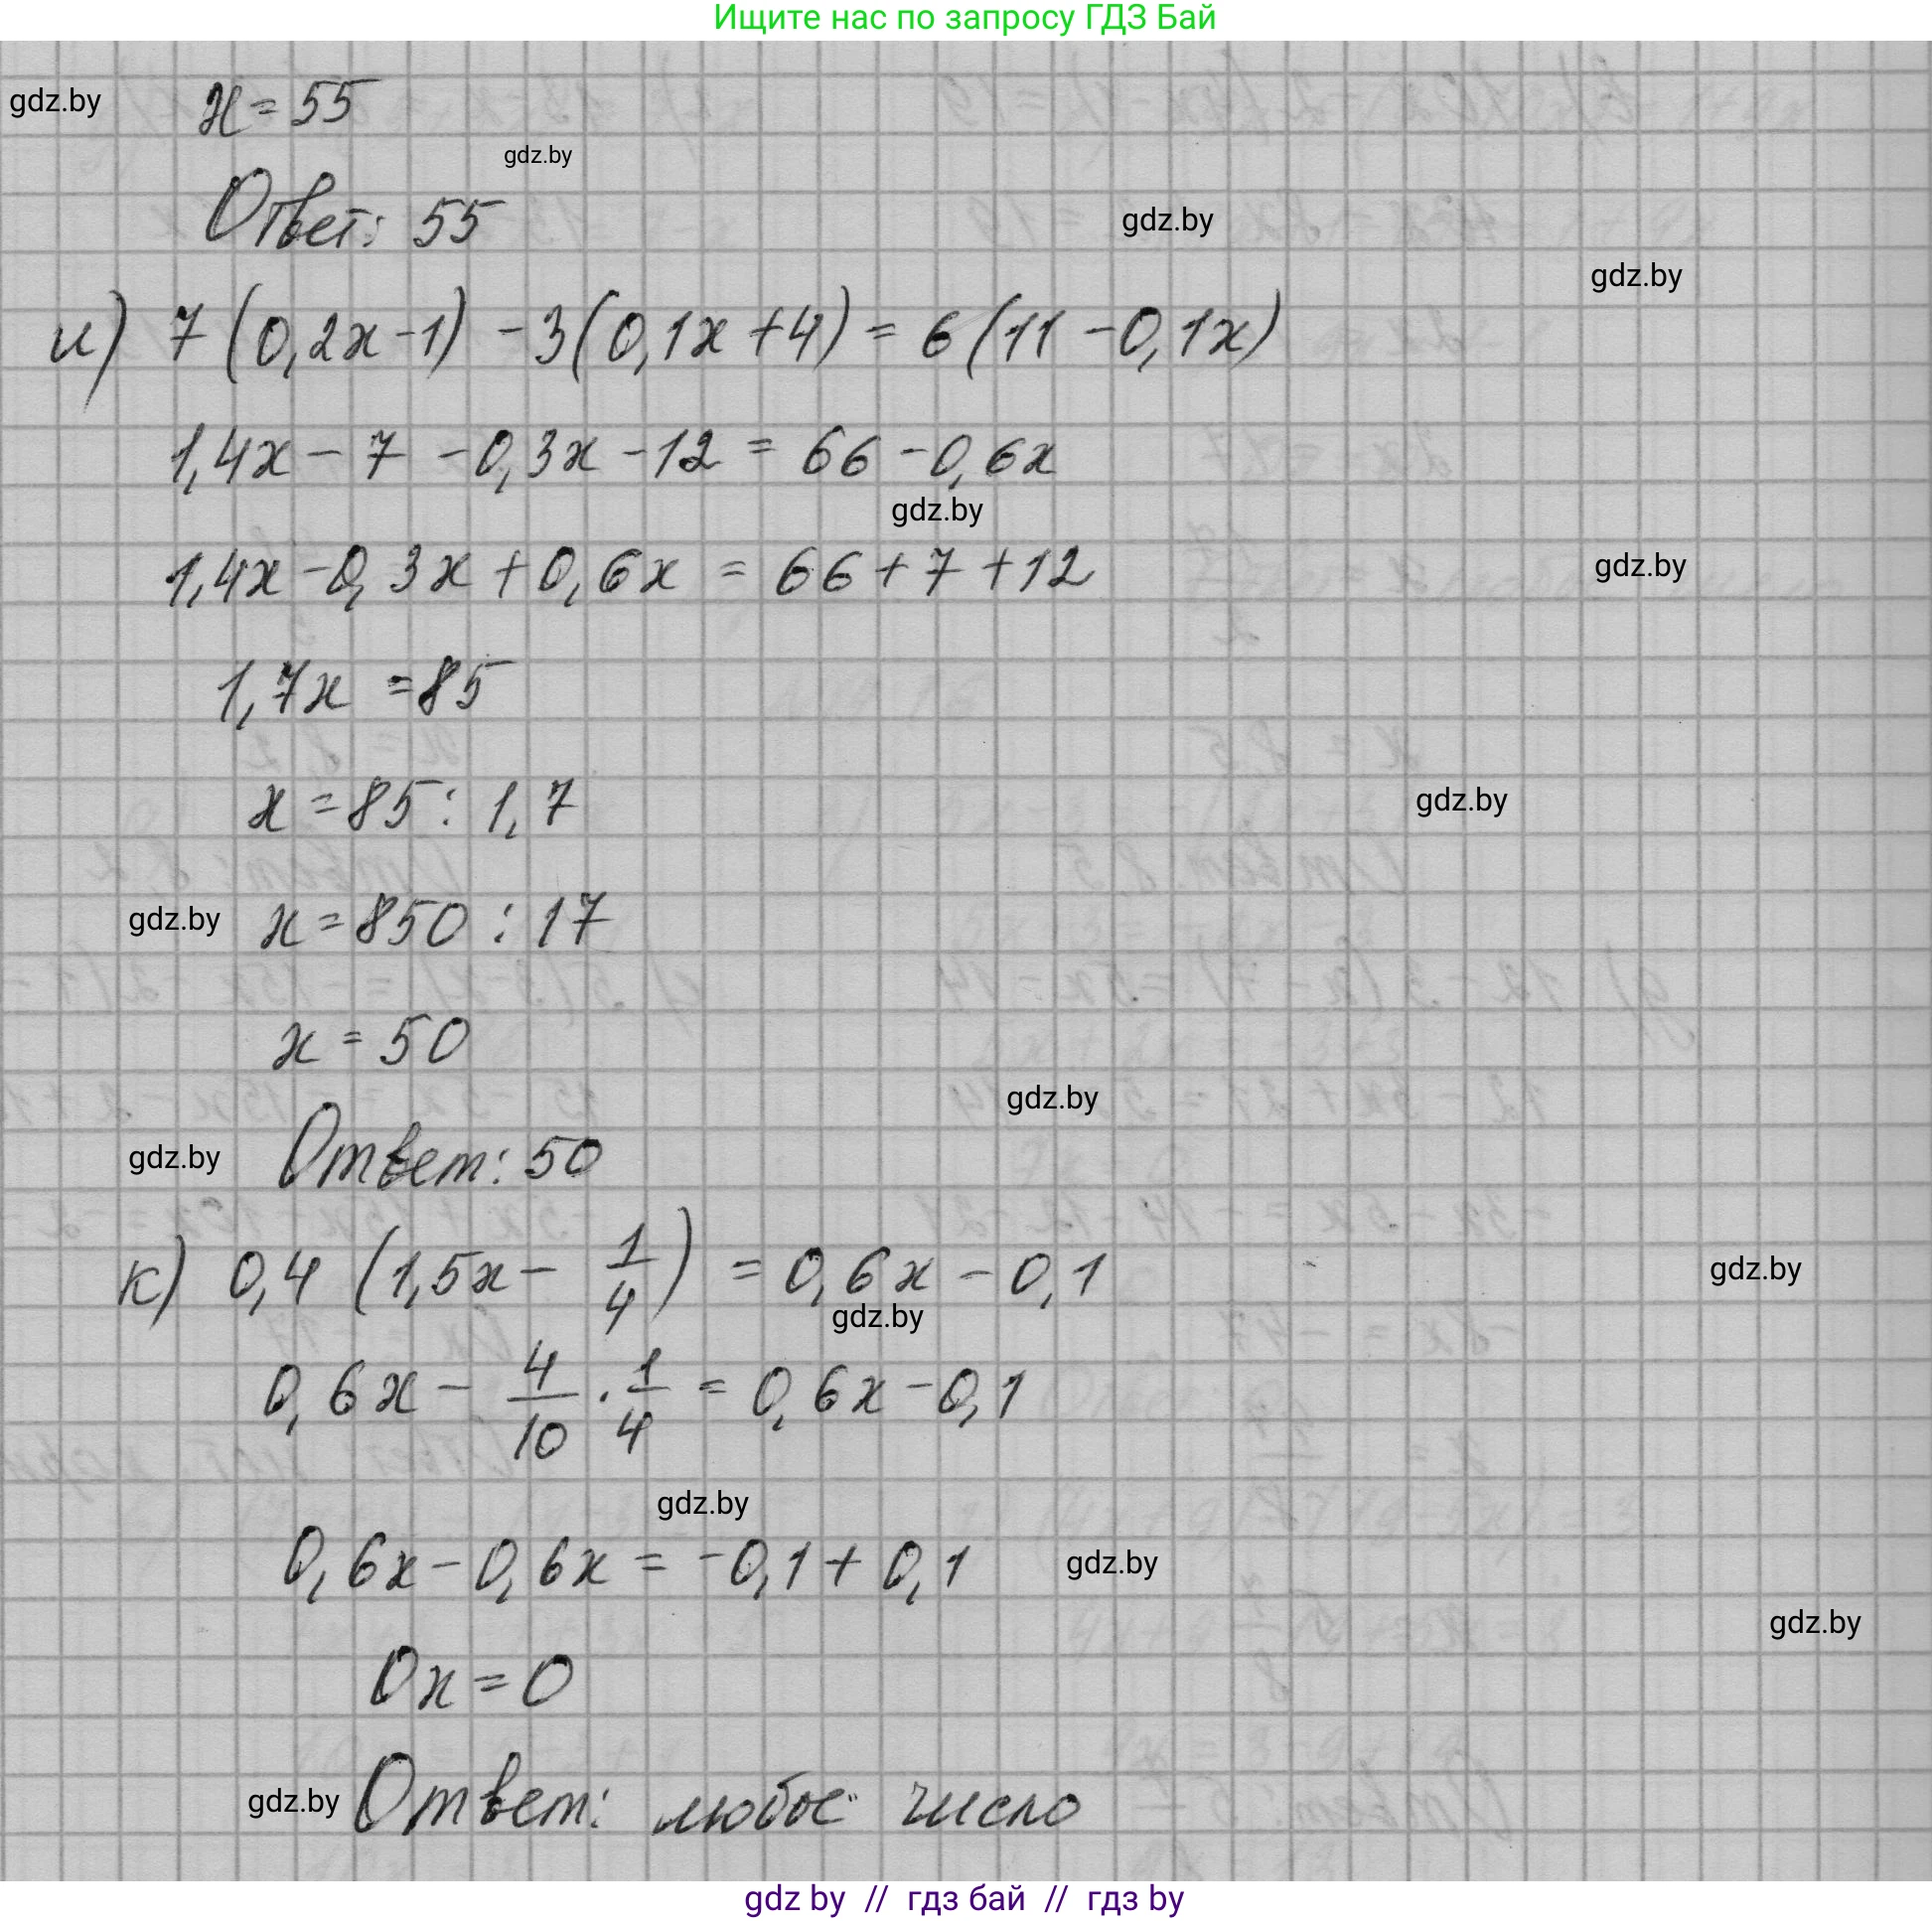 Ищите нас по запросу ГДЗ Бай
gdz.by x = 55
gdz.by
Ответ: 55
gdz.by
gdz.by
и) 7 (0,2x - 1) - 3(0,1x + 4) = 6 (11 - 0,1x)
1,4x - 7 - 0,3x - 12 = 66 - 0,6x
gdz.by
1,4x - 0,3x + 0,6x = 66 + 7 + 12
gdz.by
1,7x = 85
x = 85 : 1,7
gdz.by
gdz.by x = 850 : 17
x = 50
gdz.by
gdz.by Ответ: 50
к) 0,4 (1,5x - 1/4) = 0,6x - 0,1
gdz.by
gdz.by
0,6x - 4/10 · 1/4 = 0,6x - 0,1
gdz.by
0,6x - 0,6x = -0,1 + 0,1
gdz.by
gdz.by
0x = 0
gdz.by Ответ: любое число
gdz by // гдз бай // гдз by